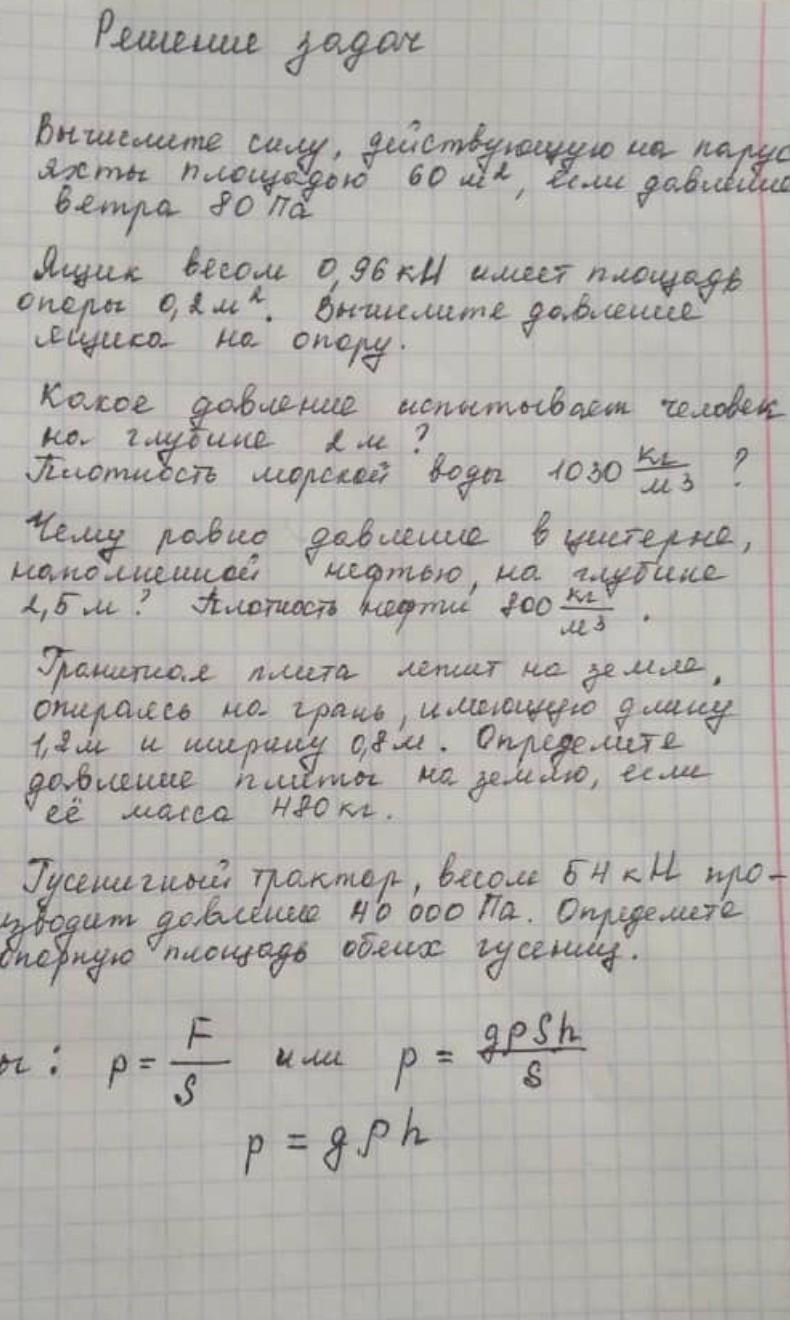 Решение задач
Вычислите силу, действующую на парус
яхты площадью 60 м², если давление
ветра 80 Па
Ящик весом 0,96 кН имеет площадь
опоры 0,2 м². Вычислите давление
ящика на опору.
Какое давление испытывает человек
на глубине 2 м ?
Плотность морской воды 1030 кг/м3 ?
Чему равно давление в цистерне,
наполненной нефтью, на глубине
2,5 м? Плотность нефти 800 кг/м3 .
Гранитная плита лежит на земле,
опираясь на грань, имеющую длину
1,2 м и ширину 0,8 м. Определите
давление плиты на землю, если
её масса 480 кг.
Гусеничный трактор, весом 54 кН про-
изводит давление 40 000 Па. Определите
опорную площадь обеих гусениц.
ы : p = F/S или p = gρSh/S
p = gρh